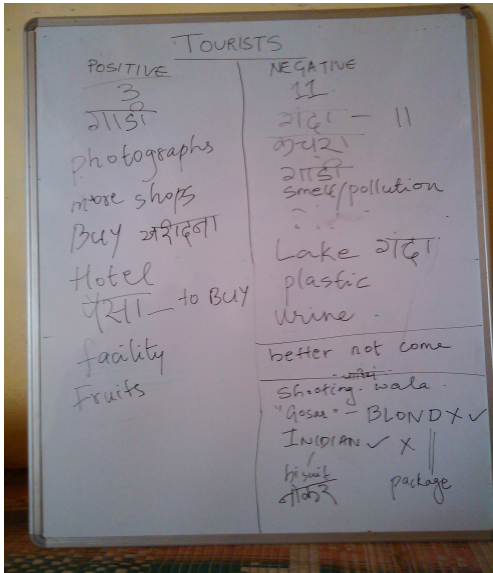 TOURISTS
POSITIVE
3
गाडी
photographs
more shops
Buy खरीदना
Hotel
पैसा — to BUY
facility
Fruits
NEGATIVE
11
गंदा — ||
कचरा
गाडी
smell/pollution
Lake गंदा
plastic
urine.
better not come
shooting wala
"Gosar" — BLOND X ✓
INIDIAN ✓ X ||
biscuit package
नोकर